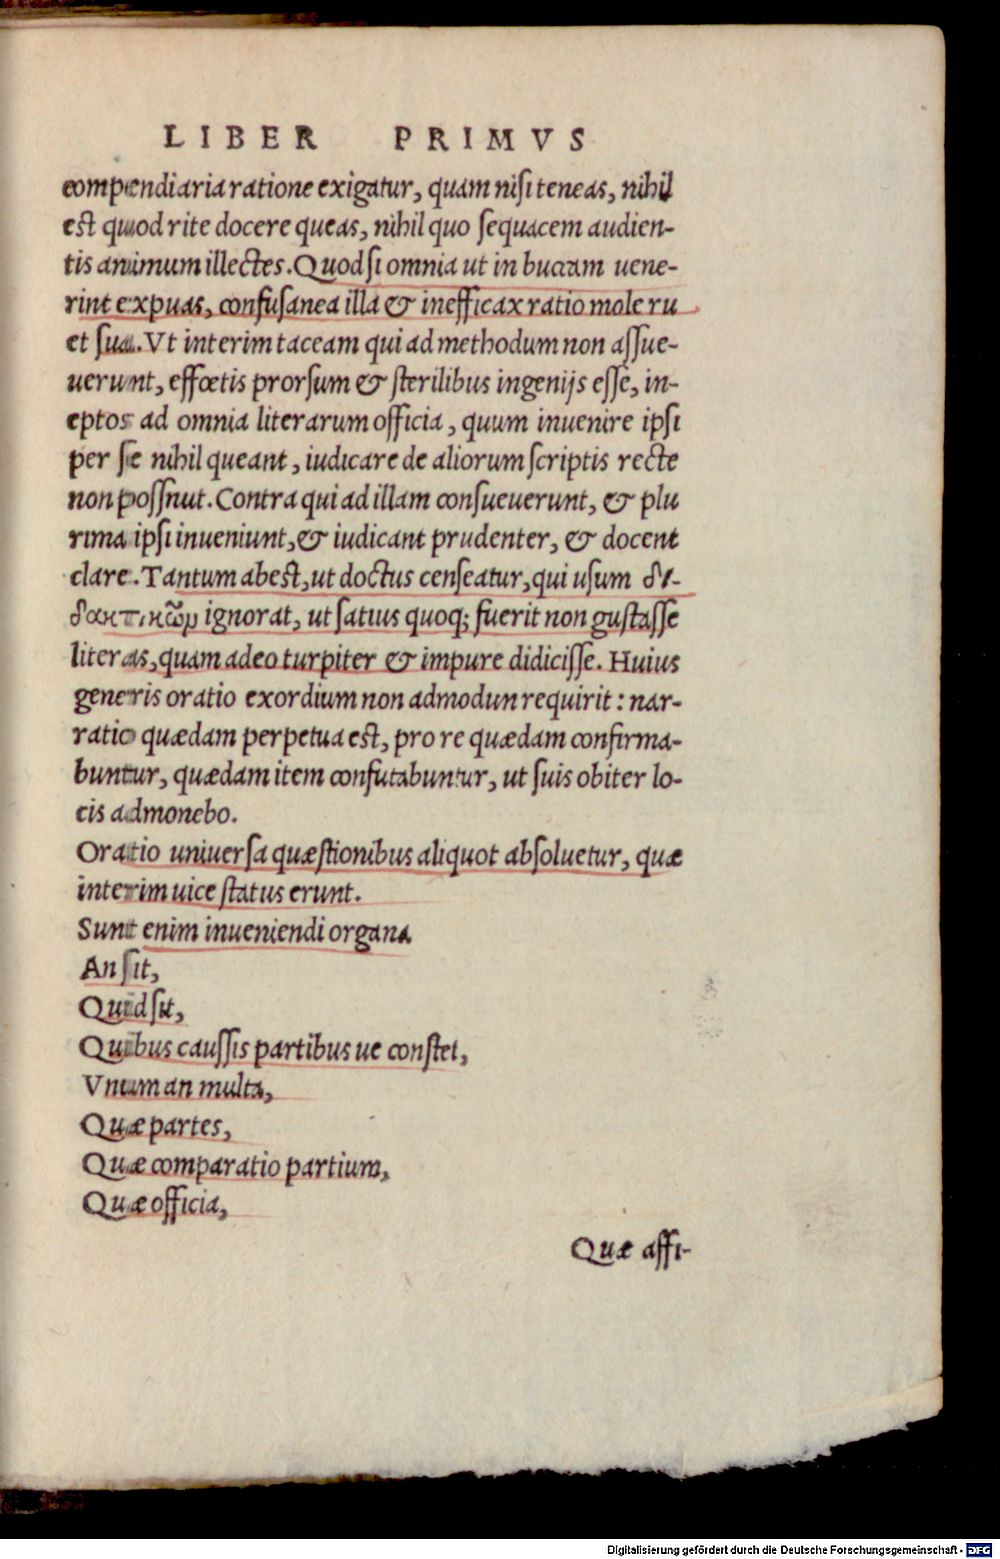 LIBER PRIMVS
compendiaria ratione exigatur, quam nisi teneas, nihil
est quod rite docere queas, nihil quo sequacem audien-
tis animum illectes. Quod si omnia ut in buccam uene-
rint expuas, confusanea illa & inefficax ratio mole ru
et sua. Vt interim taceam qui ad methodum non assue-
uerunt, effœtis prorsum & sterilibus ingenijs esse, in-
eptos ad omnia literarum officia, quum inuenire ipsi
per se nihil queant, iudicare de aliorum scriptis recte
non possnut. Contra qui ad illam consueuerunt, & plu
rima ipsi inueniunt, & iudicant prudenter, & docent
clare. Tantum abest, ut doctus censeatur, qui usum δι-
δακτικῶν ignorat, ut satius quoq; fuerit non gustasse
literas, quam adeo turpiter & impure didicisse. Huius
generis oratio exordium non admodun requirit: nar-
ratio quædam perpetua est, pro re quædam confirma-
buntur, quædam item confutabuntur, ut suis obiter lo-
cis admonebo.
Oratio uniuersa quæstionibus aliquot absoluetur, quæ
interim uice status erunt.
Sunt enim inueniendi organa
An sit,
Quid sit,
Quibus caussis partibus ue constet,
Vnum an multa,
Quæ partes,
Quæ comparatio partium,
Quæ officia,
Quæ affi-
Digitalisierung gefördert durch die Deutsche Forschungsgemeinschaft - DFG